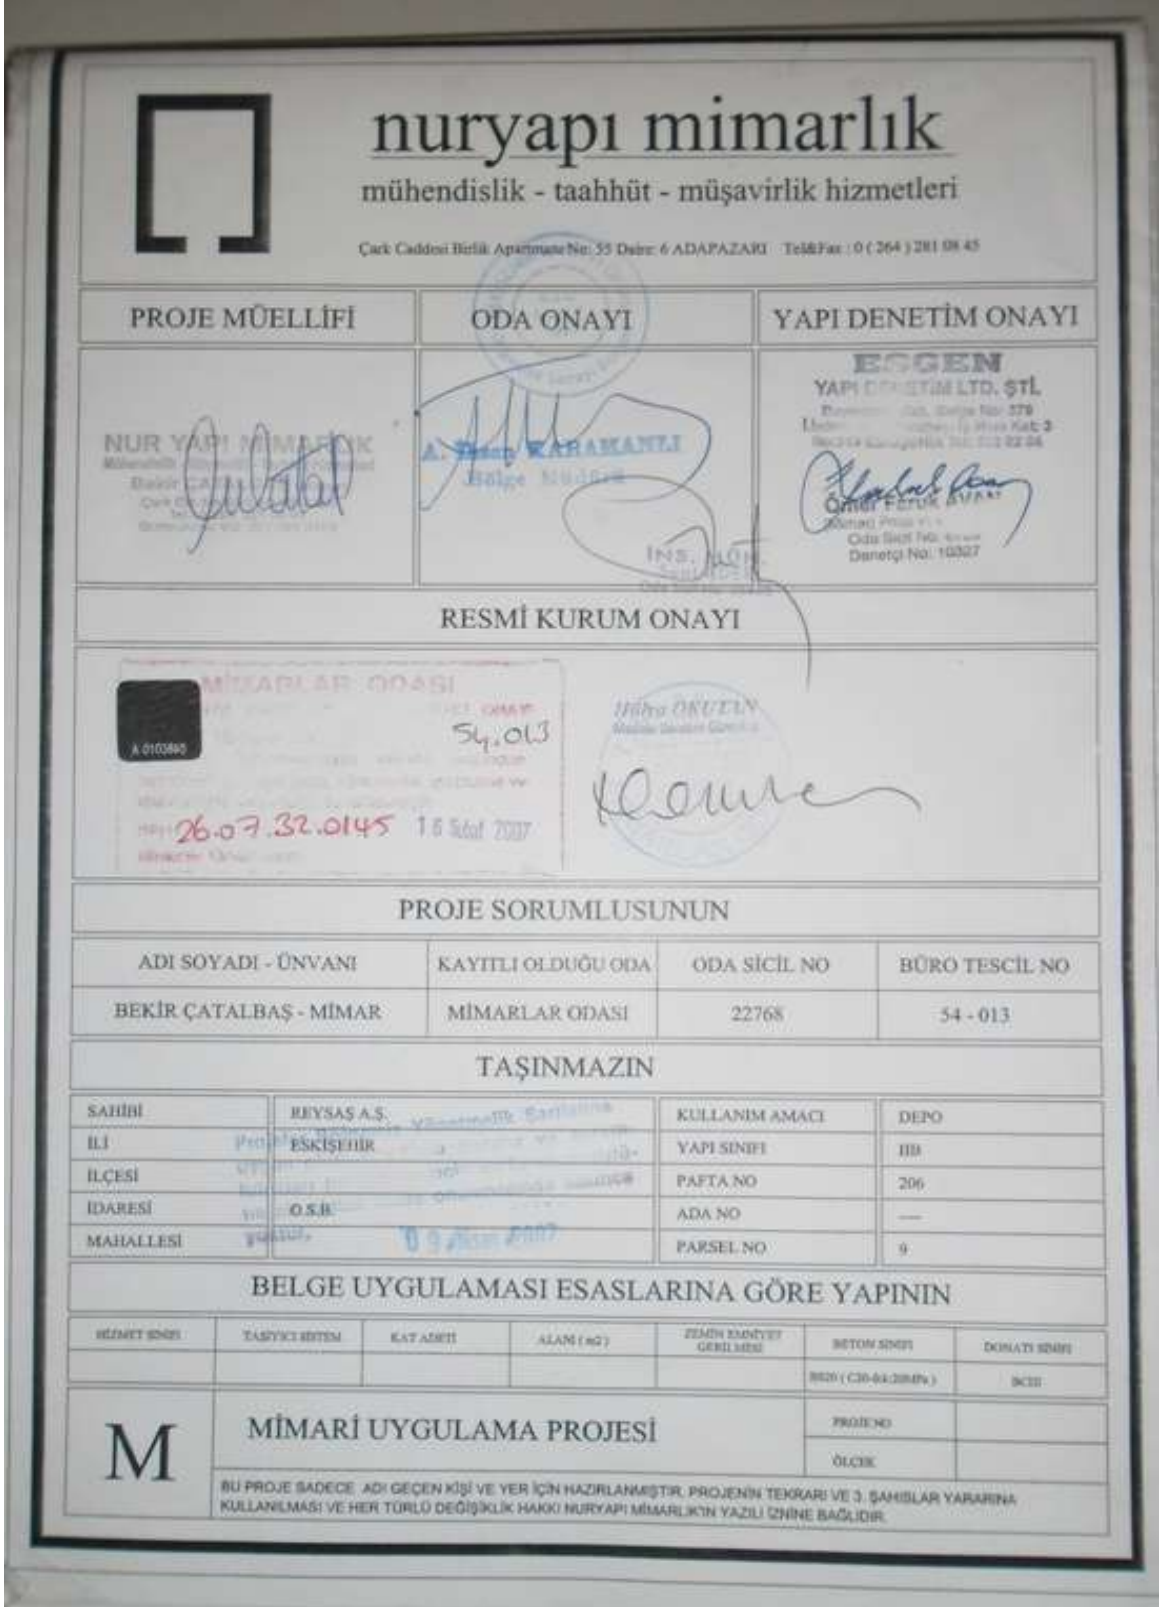 nuryapı mimarlık
mühendislik - taahhüt - müşavirlik hizmetleri
Çark Caddesi Birlik Apartmanı No: 55 Daire: 6 ADAPAZARI Tel&Fax : 0 ( 264 ) 281 08 45
PROJE MÜELLİFİ ODA ONAYI YAPI DENETİM ONAYI
ESGEN
YAPI DENETİM LTD. ŞTİ.
NUR YAPI MİMARLIK
KARAMANLI
Bölge Müdürü
Ömer Faruk AVAN
Oda Sicil No:
Denetçi No: 10327
İNŞ. MÜH.
RESMİ KURUM ONAYI
MİMARLAR ODASI
54.013
A 0103890
26.07.32.0145 16 Şubat 2007
Hülya OKUTAN
PROJE SORUMLUSUNUN
ADI SOYADI - ÜNVANI KAYITLI OLDUĞU ODA ODA SİCİL NO BÜRO TESCİL NO
BEKİR ÇATALBAŞ - MİMAR MİMARLAR ODASI 22768 54 - 013
TAŞINMAZIN
SAHİBİ REYSAŞ A.Ş. KULLANIM AMACI DEPO
İLİ ESKİŞEHİR YAPI SINIFI IIB
İLÇESİ PAFTA NO 206
İDARESİ O.S.B. ADA NO ----
MAHALLESİ PARSEL NO 9
09 Nisan 2007
BELGE UYGULAMASI ESASLARINA GÖRE YAPININ
HİZMET SINIFI TAŞIYICI SİSTEM KAT ADETİ ALANI ( m2 ) ZEMİN EMNİYET GERİLMESİ BETON SINIFI DONATI SINIFI
BÇIII
M
MİMARİ UYGULAMA PROJESİ PROJE NO
ÖLÇEK
BU PROJE SADECE ADI GEÇEN KİŞİ VE YER İÇİN HAZIRLANMIŞTIR. PROJENİN TEKRARI VE 3. ŞAHISLAR YARARINA
KULLANILMASI VE HER TÜRLÜ DEĞİŞİKLİK HAKKI NURYAPI MİMARLIK'IN YAZILI İZNİNE BAĞLIDIR.